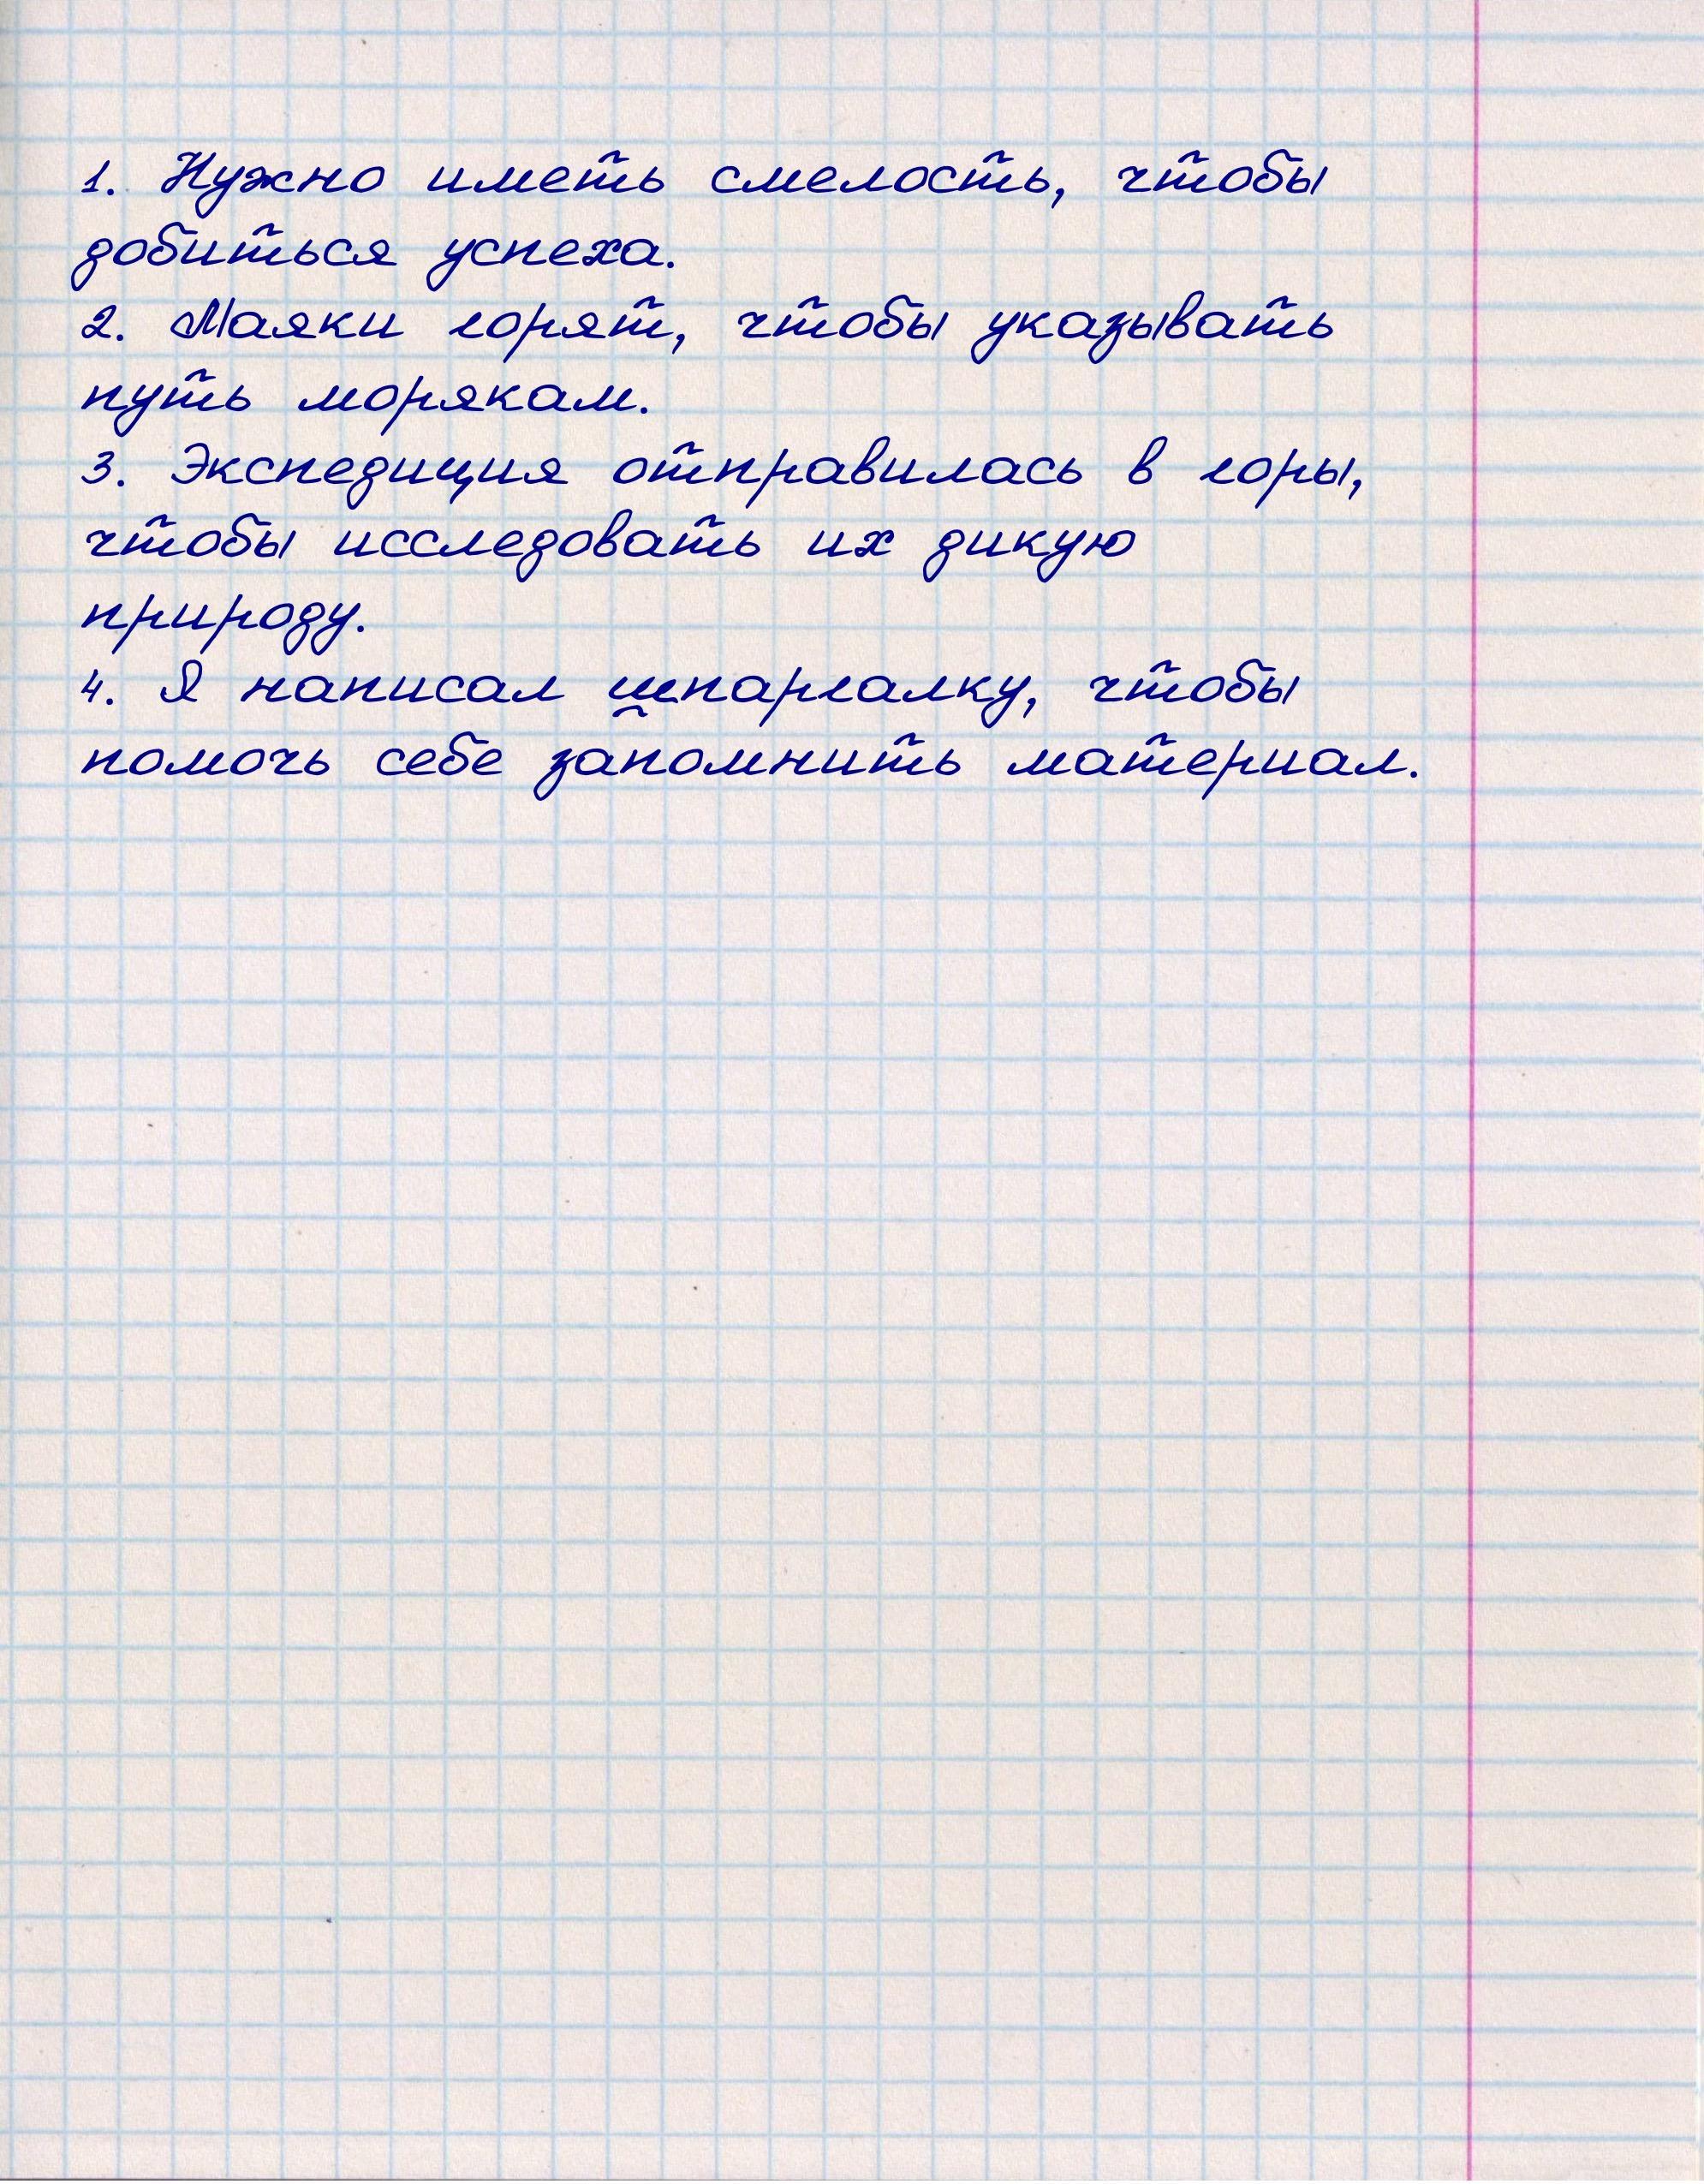 1. Нужно иметь смелость, чтобы
добиться успеха.
2. Маяки горят, чтобы указывать
путь морякам.
3. Экспедиция отправилась в горы,
чтобы исследовать их дикую
природу.
4. Я написал шпаргалку, чтобы
помочь себе запомнить материал.